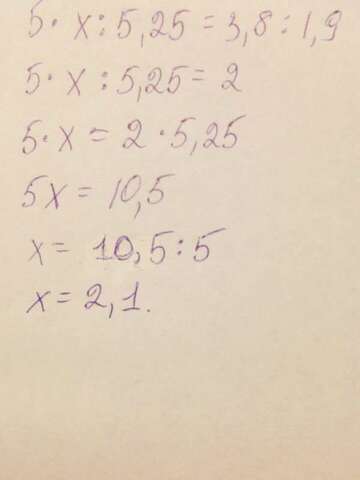 5· x : 5,25 = 3,8 : 1,9
5· x : 5,25 = 2
5· x = 2 · 5,25
5x = 10,5
x = 10,5 : 5
x = 2,1.